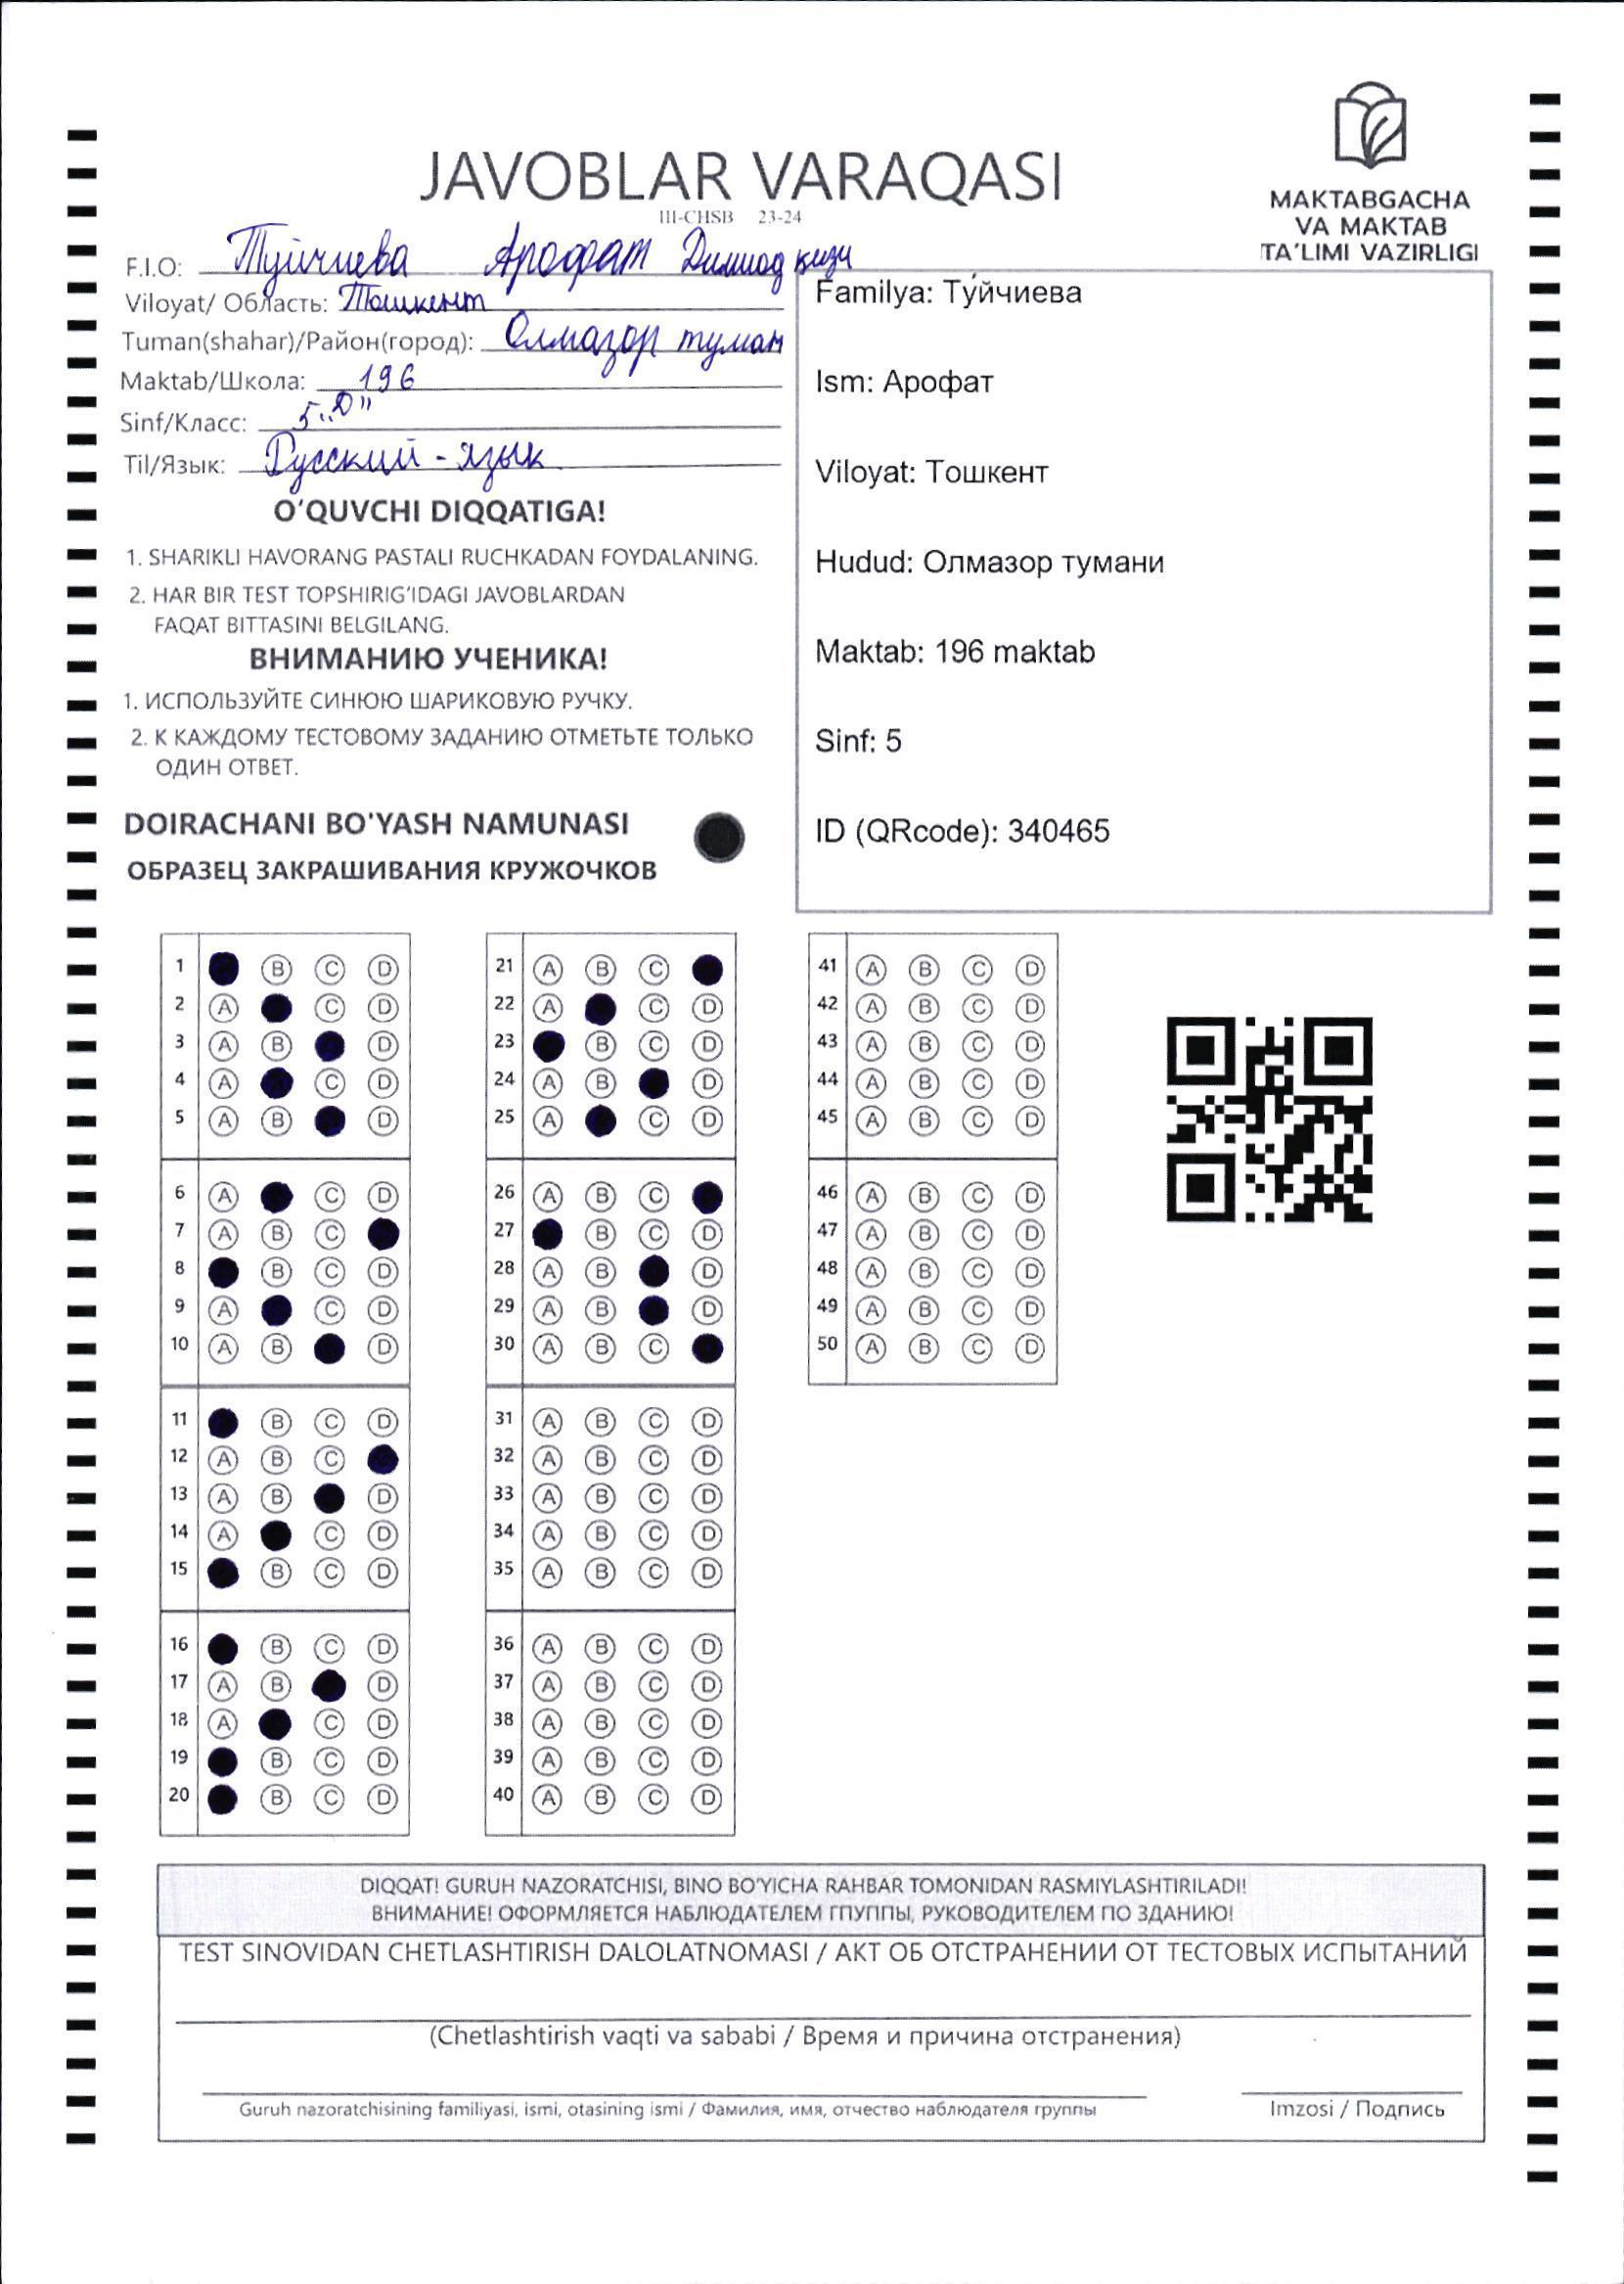 JAVOBLAR VARAQASI
III-CHSB 23-24
MAKTABGACHA
VA MAKTAB
TA'LIMI VAZIRLIGI
F.I.O: Туйчиева Арофат Дилшод кизи
Viloyat/ Область: Тошкент
Tuman(shahar)/Район(город): Олмазор туман
Maktab/Школа: 196
Sinf/Класс: 5 „D"
Til/Язык: Русский - язык
O'QUVCHI DIQQATIGA!
1. SHARIKLI HAVORANG PASTALI RUCHKADAN FOYDALANING.
2. HAR BIR TEST TOPSHIRIG'IDAGI JAVOBLARDAN
FAQAT BITTASINI BELGILANG.
ВНИМАНИЮ УЧЕНИКА!
1. ИСПОЛЬЗУЙТЕ СИНЮЮ ШАРИКОВУЮ РУЧКУ.
2. К КАЖДОМУ ТЕСТОВОМУ ЗАДАНИЮ ОТМЕТЬТЕ ТОЛЬКО
ОДИН ОТВЕТ.
DOIRACHANI BO'YASH NAMUNASI
ОБРАЗЕЦ ЗАКРАШИВАНИЯ КРУЖОЧКОВ
Familya: Туйчиева
Ism: Арофат
Viloyat: Тошкент
Hudud: Олмазор тумани
Maktab: 196 maktab
Sinf: 5
ID (QRcode): 340465
1 B C D
2 A C D
3 A B D
4 A C D
5 A B D
6 A C D
7 A B C
8 B C D
9 A C D
10 A B D
11 B C D
12 A B C
13 A B D
14 A C D
15 B C D
16 B C D
17 A B D
18 A C D
19 B C D
20 B C D
21 A B C
22 A C D
23 B C D
24 A B D
25 A C D
26 A B C
27 B C D
28 A B D
29 A B D
30 A B C
31 A B C D
32 A B C D
33 A B C D
34 A B C D
35 A B C D
36 A B C D
37 A B C D
38 A B C D
39 A B C D
40 A B C D
41 A B C D
42 A B C D
43 A B C D
44 A B C D
45 A B C D
46 A B C D
47 A B C D
48 A B C D
49 A B C D
50 A B C D
DIQQAT! GURUH NAZORATCHISI, BINO BO'YICHA RAHBAR TOMONIDAN RASMIYLASHTIRILADI!
ВНИМАНИЕ! ОФОРМЛЯЕТСЯ НАБЛЮДАТЕЛЕМ ГПУППЫ, РУКОВОДИТЕЛЕМ ПО ЗДАНИЮ!
TEST SINOVIDAN CHETLASHTIRISH DALOLATNOMASI / АКТ ОБ ОТСТРАНЕНИИ ОТ ТЕСТОВЫХ ИСПЫТАНИЙ
(Chetlashtirish vaqti va sababi / Время и причина отстранения)
Guruh nazoratchisining familiyasi, ismi, otasining ismi / Фамилия, имя, отчество наблюдателя группы
Imzosi / Подпись